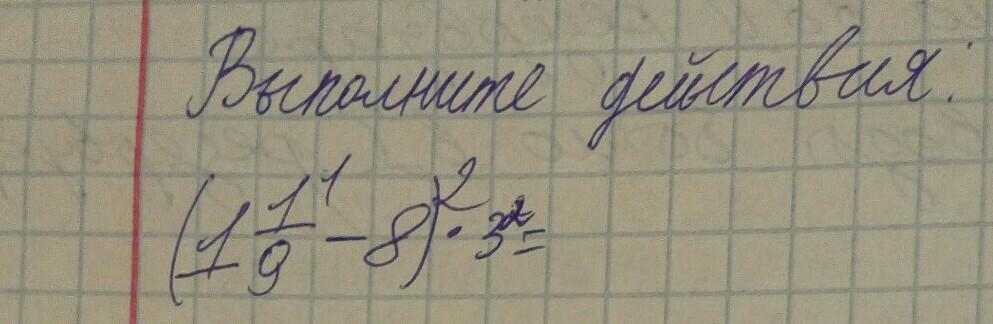 Выполните действия:
(1 1/9¹ - 8)² · 3² =